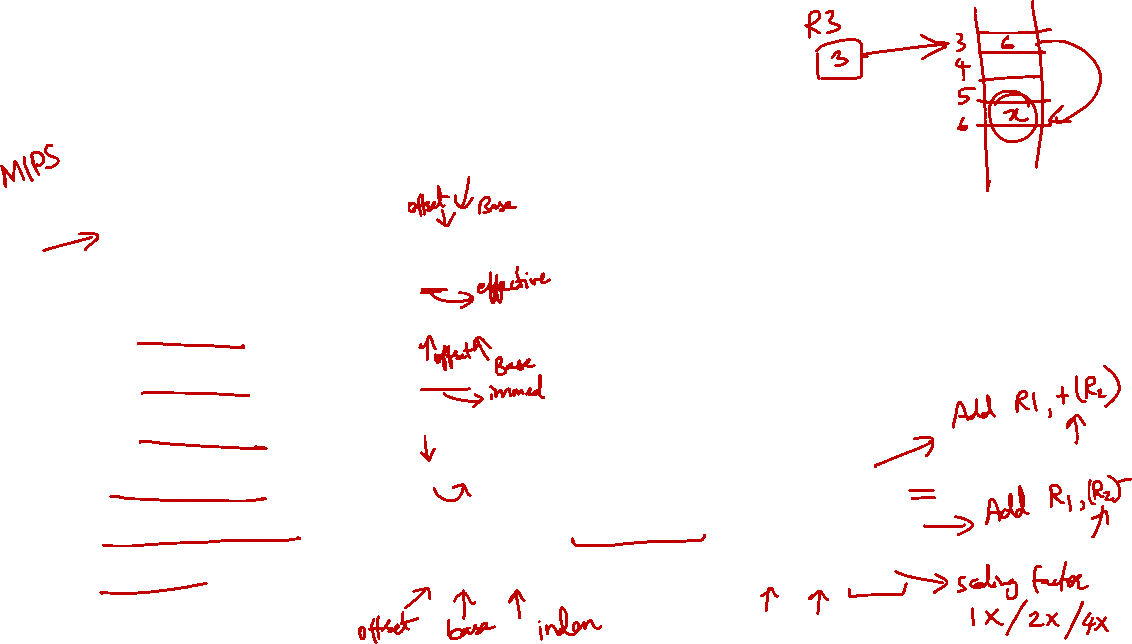 R3
3
3 6
4
5
6 x
MIPS
offset Base
effective
offset Base
immed
Add R1, +(R2)
Add R1, (R2)-
scaling factor
1X/2X/4X
offset base index